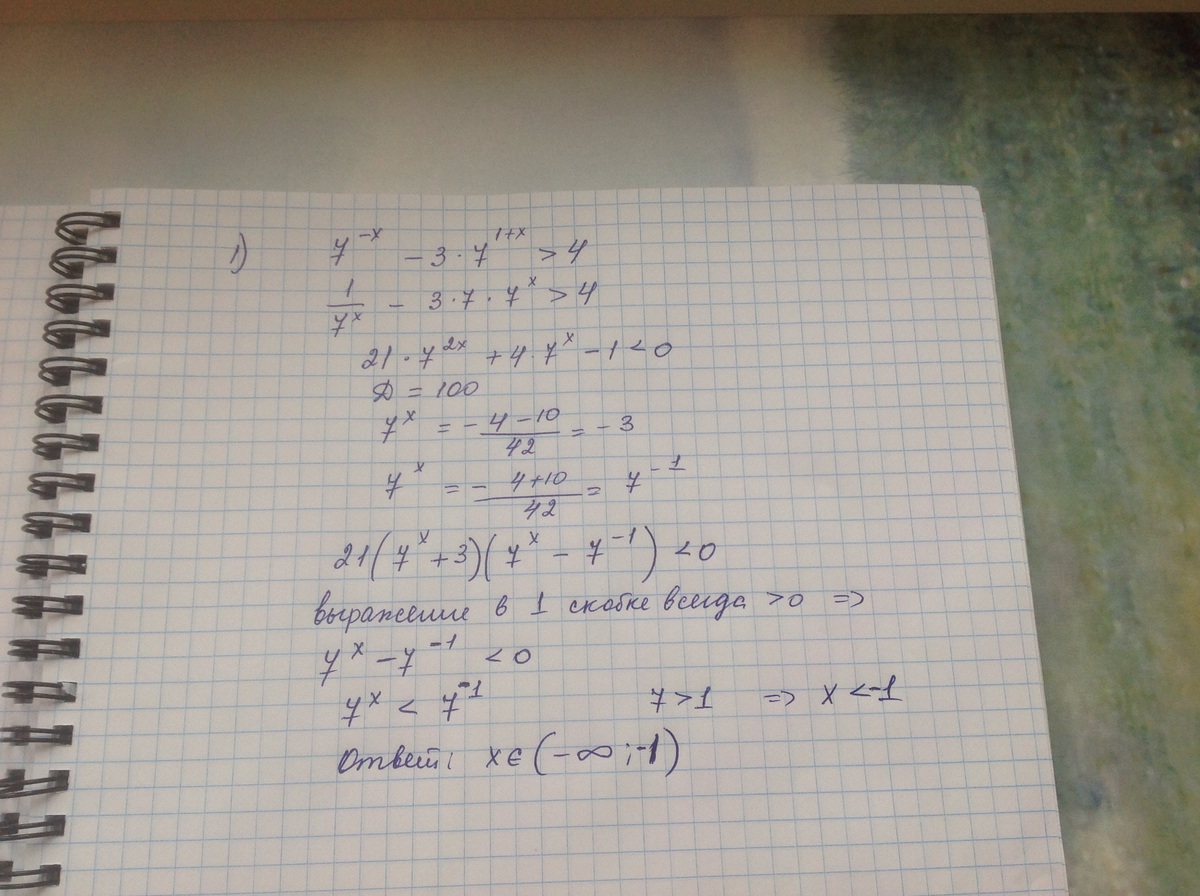 1) 7^{-x} - 3 · 7^{1+x} > 4
\frac{1}{7^x} - 3 · 7 · 7^x > 4
21 · 7^{2x} + 4 · 7^x - 1 < 0
D = 100
7^x = \frac{-4-10}{42} = -3
7^x = \frac{-4+10}{42} = 7^{-1}
21(7^x + 3)(7^x - 7^{-1}) < 0
выражение в 1 скобке всегда > 0 =>
7^x - 7^{-1} < 0
7^x < 7^{-1} 7 > 1 => x < -1
Ответ: x ∈ (-∞ ; -1)